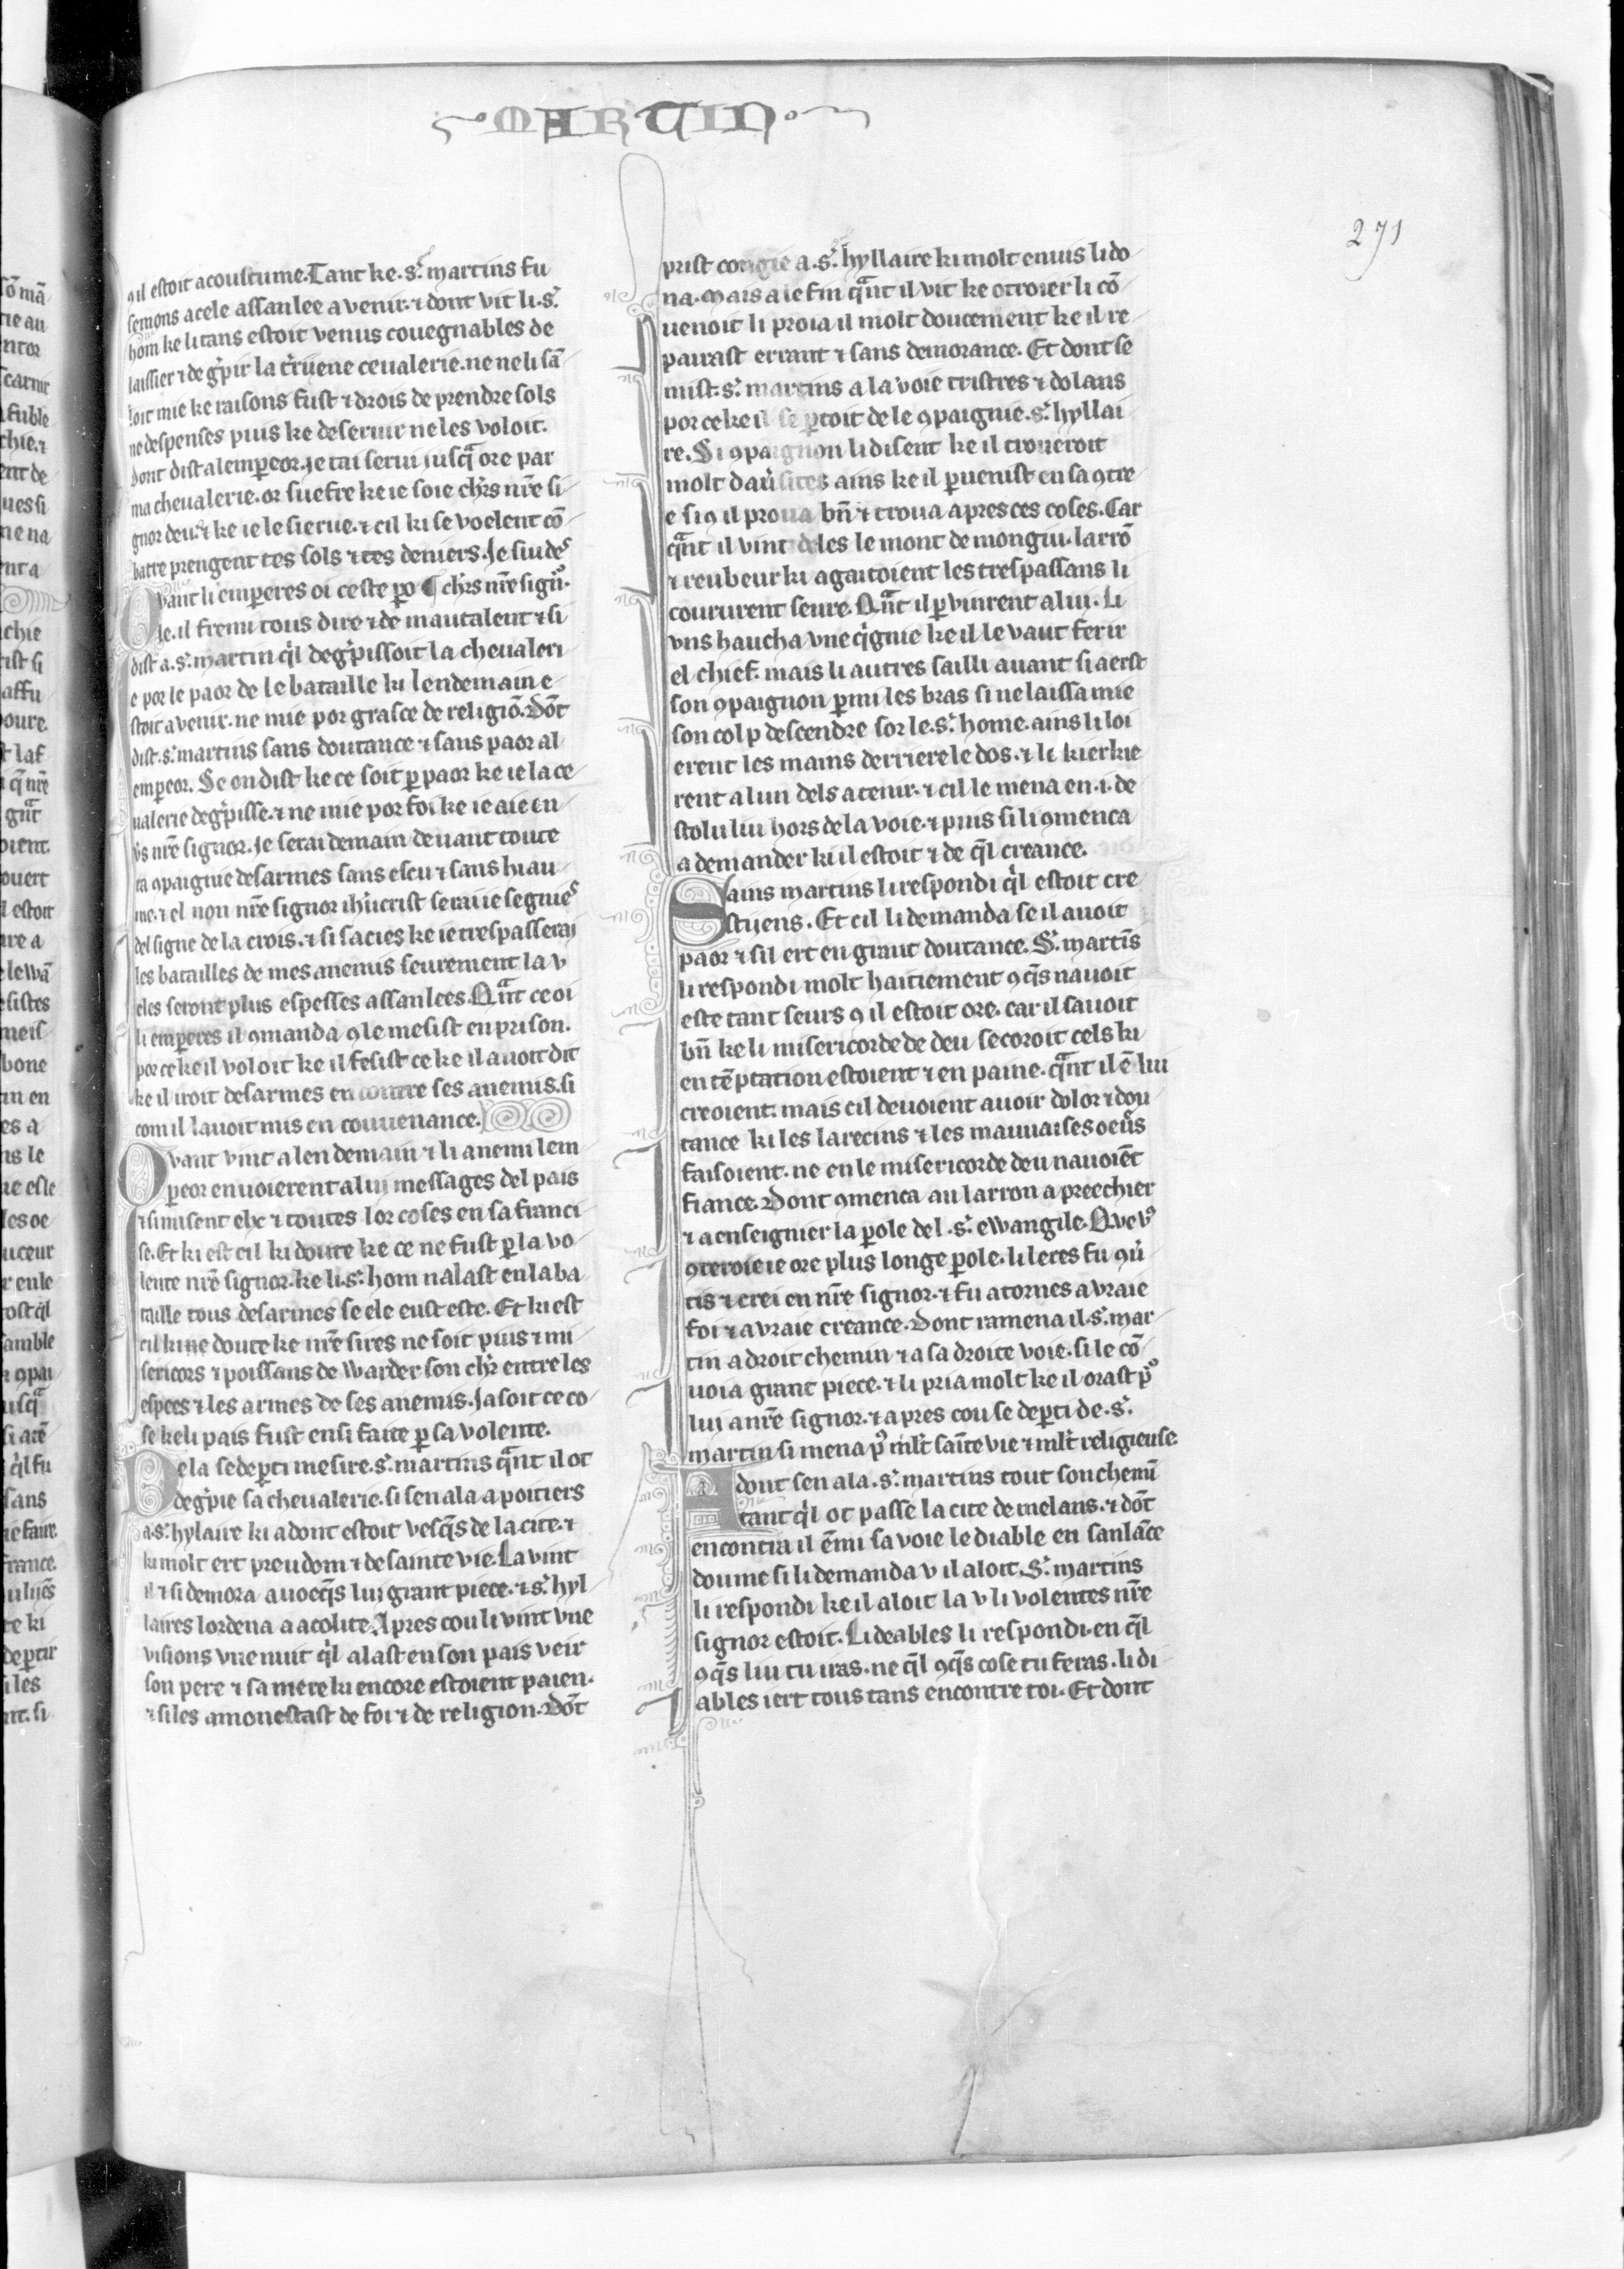 MARTIN
271
ꝯ il estoit acoustume. Tant ke .sͬ. martins fu
semons a cele assanlee a venir. ⁊ dont vit li .sͬ.
hom ke li tans estoit venus couegnables de
laissier ⁊ de gͥpir la tͬruene ceualerie. ne ne li sā
loit mie ke raisons fust ⁊ drois de prendre sols
ne despenses puis ke deseruir ne les voloit.
dont dist al emꝑeor. Je tai serui iusqͣ ore par
ma cheualerie. or suefre ke ie soie chr̄s nr̄e si
gnor deu. ⁊ ke ie le sierue. ⁊ cil ki se voelent cō
batre prengent tes sols ⁊ tes deniers. Je sui des
Quant li emꝑeres oi ceste ꝑo ¶ chr̄s nr̄e signͦ.
le. il fremi tous dire ⁊ de mautalent ⁊ si
dist a .sͬ. martin qͥl degͥpissoit la cheualeri
e por le paor de le bataille ki lendemain e
stoit a venir. ne mie por grasce de religiō. Dōt
dist .sͬ. martins sans doutance ⁊ sans paor al
emꝑeor. Se on dist ke ce soit ꝑ paor ke ie la ce
ualerie degͥpisse. ⁊ ne mie por foi ke ie aie en
v̄s nr̄e signor. Je serai demain deuant toute
ta ꝯpaignie desarmes sans escu ⁊ sans hiau
me. ⁊ el non nr̄e signor ihū crist serai ie segnies
del signe de la crois. ⁊ si sacies ke ie trespasserai
les batailles de mes anemis seurement la v
eles seront plus espesses assanlees. Qͣnt ce oi
li emꝑeres il ꝯmanda ꝯ le mesist en prison.
por ce ke il voloit ke il fesist ce ke il auoit dit
ke il iroit desarmes en contre ses anemis. si
com il lauoit mis en couuenance.
Quant vint a len demain ⁊ li anemi lem
ꝑeor enuoierent a lui messages del pais
⁊ si misent els ⁊ toutes lor coses en sa franci
se. Et ki est cil ki doute ke ce ne fust ꝑ la vo
lente nr̄e signor. ke li .sͬ. hom nalast en la ba
taille tous desarmes se ele eust este. Et ki est
cil ki ne doute ke nr̄e sires ne soit puis ⁊ mi
sericors ⁊ poissans de warder son chr̄ entre les
espees ⁊ les armes de ses anemis. Ja soit ce co
se ke li pais fust ensi faite ꝑ sa volente.
De la se deꝑti me sire .sͬ. martins qͣnt il ot
degͥpie sa cheualerie. si sen ala a poitiers
a .sͬ. hylaire ki adont estoit vesqͥs de la cite. ⁊
ki molt ert preudom ⁊ de sainte vie. La vint
il ⁊ si demora auoecqͥs lui grant piece. ⁊ .sͬ. hyl
laires lordena a acolite. Apres cou li vint vne
visions vne nuit qͥl alast en son pais veir
son pere ⁊ sa mere ki encore estoient paien.
⁊ si les amonestast de foi ⁊ de religion. Dōt
prist congie a .sͬ. hyllaire ki molt enuis li do
na. Mais a le fin qͣnt il vit ke otroier li cō
uenoit li proia il molt doucement ke il re
pairast errant ⁊ sans demorance. Et dont se
mist .sͬ. martins a la voie tristres ⁊ dolans
por ce ke il se ꝑtoit de le ꝯpaignie .sͬ. hyllai
re. Si ꝯpaignon li disent ke il troueroit
molt dauͥsites ains ke il ꝑuenist en sa ꝯtre
e si ꝯ il proua bn̄ ⁊ troua apres ces coses. Car
qͣnt il vint deles le mont de mongiu. larrō
⁊ reubeur ki agaitoient les trespassans li
coururent seure. Qͣnt il ꝑvinrent a lui. Li
vns haucha vne qͥgnie ke il le vaut ferir
el chief. mais li autres sailli auant si aerst
son ꝯpaignon ꝑmi les bras si ne laissa mie
son colp descendre sor le .sͬ. home. ains li loi
erent les mains derriere le dos. ⁊ li kierkie
rent a lun dels a tenir. ⁊ cil le mena en .i. de
stolu liu hors de la voie. ⁊ puis si li ꝯmenca
a demander ki il estoit ⁊ de qͥl creance.
Sains martins li respondi qͥl estoit cre
stijens. Et cil li demanda se il auoit
paor ⁊ sil ert en grant doutance. Sͬ. martīs
li respondi molt haitiement ꝯqͥs nauoit
este tant seurs ꝯ il estoit ore. car il sauoit
bn̄ ke li misericorde de deu secoroit cels ki
en tēptation estoient ⁊ en paine. qͣnt il ē lui
creoient. mais cil deuoient auoir dolor ⁊ dou
tance ki les larecins ⁊ les mauuaises oeuͬs
faisoient. ne en le misericorde deu nauoiēt
fiance. Dont ꝯmenca au larron a preechier
⁊ a enseignier la ꝑole del .sͬ. ewangile. Que vͦ
ꝯteroie ie ore plus longe ꝑole. li leres fu ꝯuͥ
tis ⁊ crei en nr̄e signor. ⁊ fu atornes a vraie
foi ⁊ a vraie creance. Dont ramena il .sͬ. mar
tin a droit chemin ⁊ a sa droite voie. si le cō
uoia grant piece. ⁊ li pria molt ke il orast pͦ
lui a nr̄e signor. ⁊ apres cou se deꝑti de .sͬ.
martin si mena pͦ ml̄t saīte vie ⁊ ml̄t religieuse.
Adont sen ala .sͬ. martins tout son chemī
tant qͥl ot passe la cite de melans. ⁊ dōt
encontra il ēmi sa voie le diable en sanlāce
doume si li demanda v il aloit. Sͬ. martins
li respondi ke il aloit la v li volentes nr̄e
signor estoit. Li deables li respondi. en qͥl
ꝯqͥs liu tu iras. ne qͥl ꝯqͥs cose tu feras. li di
ables iert tous tans encontre toi. Et dont